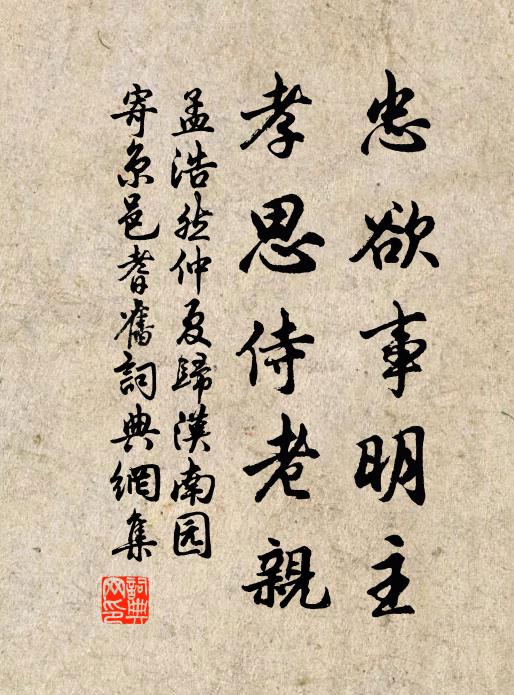 忠欲事明主
孝思侍老親
孟浩然仲夏歸漢南园
寄京邑耆舊詞典網集
詞典
网印